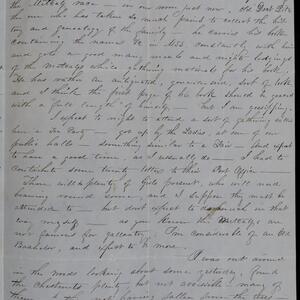 the Metcalf race — on our some past now. Old Doct Pitt
the man who has taken so much pains to collect the his-
tory and genealogy of the family — he carries his book
containing the names &c in MSS. constantly with him
and gets a good many meals and nights lodgings
of the Metcalfs while gathering materials for his book.
He has rather an antiquated, sort of look
and I think the first page of his book should be graced
with a "full length" of himself, but I am gossiping.
I expect to night to attend a sort of gathering called
here a Tea Party — got up by the Ladies, at one of our
public halls — something similar to a Fair and expect
to have a good time, as I usually do — I had to
contribute some twenty letters to their Post Office
There will be plenty of Girls present, who will need
beauing round some, and I suppose they must be
attended to — but dont expect to in that
way myself as you know the Metcalfs are
not famous for gallantry. I'm considered an Old
Bachelor and expect to be more.
I was out around
in the woods looking about some yesterday, found
the Chestnuts plenty, but not accessible many of
them not having fallen from the trees